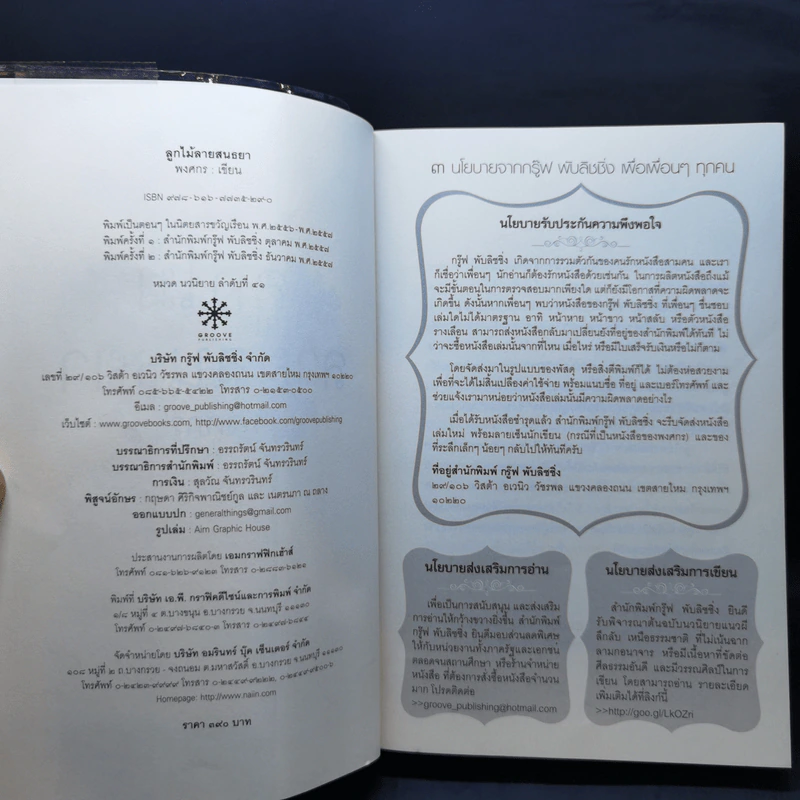 ลูกไม้ลายสนธยา
พงศกร : เขียน
ISBN ๙๗๘-๖๑๖-๗๗๓๕-๒๙๐
พิมพ์เป็นตอนๆ ในนิตยสารขวัญเรือน พ.ศ.๒๕๕๖-พ.ศ.๒๕๕๘
พิมพ์ครั้งที่ ๑ : สำนักพิมพ์กรู๊ฟ พับลิชชิ่ง ตุลาคม พ.ศ.๒๕๕๘
พิมพ์ครั้งที่ ๒ : สำนักพิมพ์กรู๊ฟ พับลิชชิ่ง ธันวาคม พ.ศ.๒๕๕๘
หมวด นวนิยาย ลำดับที่ ๔๑
GROOVE
PUBLISHING
บริษัท กรู๊ฟ พับลิชชิ่ง จำกัด
เลขที่ ๒๙/๑๐๖ วิสต้า อเวนิว วัชรพล แขวงคลองถนน เขตสายไหม กรุงเทพฯ ๑๐๒๒๐
โทรศัพท์ ๐๘๕-๖๖๕-๕๔๒๒ โทรสาร ๐-๒๑๕๓-๐๕๐๐
อีเมล : groove_publishing@hotmail.com
เว็บไซต์ : www.groovebooks.com, http://www.facebook.com/groovepublishing
บรรณาธิการที่ปรึกษา : อรรถรัตน์ จันทรวรินทร์
บรรณาธิการสำนักพิมพ์ : อรรถรัตน์ จันทรวรินทร์
การเงิน : สุลวัณ จันทรวรินทร์
พิสูจน์อักษร : กฤษดา ศิริกิจพาณิชย์กูล และ เนตรนภา ณ ถลาง
ออกแบบปก : generalthings@gmail.com
รูปเล่ม : Aim Graphic House
ประสานงานการผลิตโดย เอมกราฟฟิกเฮ้าส์
โทรศัพท์ ๐๘๑-๖๒๖-๙๑๒๓ โทรสาร ๐-๒๘๘๓-๖๑๒๑
พิมพ์ที่ บริษัท เอ.พี. กราฟิคดีไซน์และการพิมพ์ จำกัด
๑/๘ หมู่ที่ ๔ ต.บางขนุน อ.บางกรวย จ.นนทบุรี ๑๑๑๓๐
โทรศัพท์ ๐-๒๔๙๗-๖๔๘๐-๓ โทรสาร ๐-๒๔๙๗-๖๔๘๔
จัดจำหน่ายโดย บริษัท อมรินทร์ บุ๊ค เซ็นเตอร์ จำกัด
๑๐๘ หมู่ที่ ๒ ถ.บางกรวย - จงถนอม ต.มหาสวัสดิ์ อ.บางกรวย จ.นนทบุรี ๑๑๑๓๐
โทรศัพท์ ๐-๒๔๒๓-๙๙๙๙ โทรสาร ๐-๒๔๔๙-๙๒๒๒, ๐-๒๔๔๙-๙๕๐๐-๖
Homepage: http://www.naiin.com
ราคา ๓๙๐ บาท
๓ นโยบายจากกรู๊ฟ พับลิชชิ่ง เพื่อเพื่อนๆ ทุกคน
นโยบายรับประกันความพึงพอใจ
กรู๊ฟ พับลิชชิ่ง เกิดจากการรวมตัวกันของคนรักหนังสือสามคน และเรา
ก็เชื่อว่าเพื่อนๆ นักอ่านก็ต้องรักหนังสือด้วยเช่นกัน ในการผลิตหนังสือถึงแม้
จะมีขั้นตอนในการตรวจสอบมากเพียงใด แต่ก็ยังมีโอกาสที่ความผิดพลาดจะ
เกิดขึ้น ดังนั้นหากเพื่อนๆ พบว่าหนังสือของกรู๊ฟ พับลิชชิ่ง ที่เพื่อนๆ ชื่นชอบ
เล่มใดไม่ได้มาตรฐาน อาทิ หน้าหาย หน้าขาว หน้าสลับ หรือตัวหนังสือ
รางเลือน สามารถส่งหนังสือกลับมาเปลี่ยนยังที่อยู่ของสำนักพิมพ์ได้ทันที ไม่
ว่าจะซื้อหนังสือเล่มนั้นจากที่ไหน เมื่อไหร่ หรือมีใบเสร็จรับเงินหรือไม่ก็ตาม
โดยจัดส่งมาในรูปแบบของพัสดุ หรือสิ่งตีพิมพ์ก็ได้ ไม่ต้องห่อสวยงาม
เพื่อที่จะได้ไม่สิ้นเปลืองค่าใช้จ่าย พร้อมแนบชื่อ ที่อยู่ และเบอร์โทรศัพท์ และ
ช่วยแจ้งเรามาหน่อยว่าหนังสือเล่มนั้นมีความผิดพลาดอย่างไร
เมื่อได้รับหนังสือชำรุดแล้ว สำนักพิมพ์กรู๊ฟ พับลิชชิ่ง จะรีบจัดส่งหนังสือ
เล่มใหม่ พร้อมลายเซ็นนักเขียน (กรณีที่เป็นหนังสือของพงศกร) และของ
ที่ระลึกเล็กๆ น้อยๆ กลับไปให้ทันทีครับ
ที่อยู่สำนักพิมพ์ กรู๊ฟ พับลิชชิ่ง
๒๙/๑๐๖ วิสต้า อเวนิว วัชรพล แขวงคลองถนน เขตสายไหม กรุงเทพฯ
๑๐๒๒๐
นโยบายส่งเสริมการอ่าน
เพื่อเป็นการสนับสนุน และส่งเสริม
การอ่านให้กว้างขวางยิ่งขึ้น สำนักพิมพ์
กรู๊ฟ พับลิชชิ่ง ยินดีมอบส่วนลดพิเศษ
ให้กับหน่วยงานทั้งภาครัฐและเอกชน
ตลอดจนสถานศึกษา หรือร้านจำหน่าย
หนังสือ ที่ต้องการสั่งซื้อหนังสือจำนวน
มาก โปรดติดต่อ
>>groove_publishing@hotmail.com
นโยบายส่งเสริมการเขียน
สำนักพิมพ์กรู๊ฟ พับลิชชิ่ง ยินดี
รับพิจารณาต้นฉบับนวนิยายแนวผี
ลึกลับ เหนือธรรมชาติ ที่ไม่เน้นฉาก
ลามกอนาจาร หรือมีเนื้อหาที่ขัดต่อ
ศีลธรรมอันดี และมีวรรณศิลป์ในการ
เขียน โดยสามารถอ่าน รายละเอียด
เพิ่มเติมได้ที่ลิงก์นี้
>>http://goo.gl/LkOZri